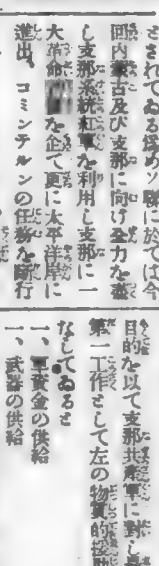 とされてゐる為めソ聯に於ては今
回内蒙古及び支那に向け全力を盡
し支那系統紅軍を利用し支那に一
大革命を企て更に太平洋岸に
進出、コミンテルンの任務を断行
目的を以て支那共産軍に對し
第一工作として左の物質的援助
なしてゐると
一、軍資金の供給
一、武器の供給